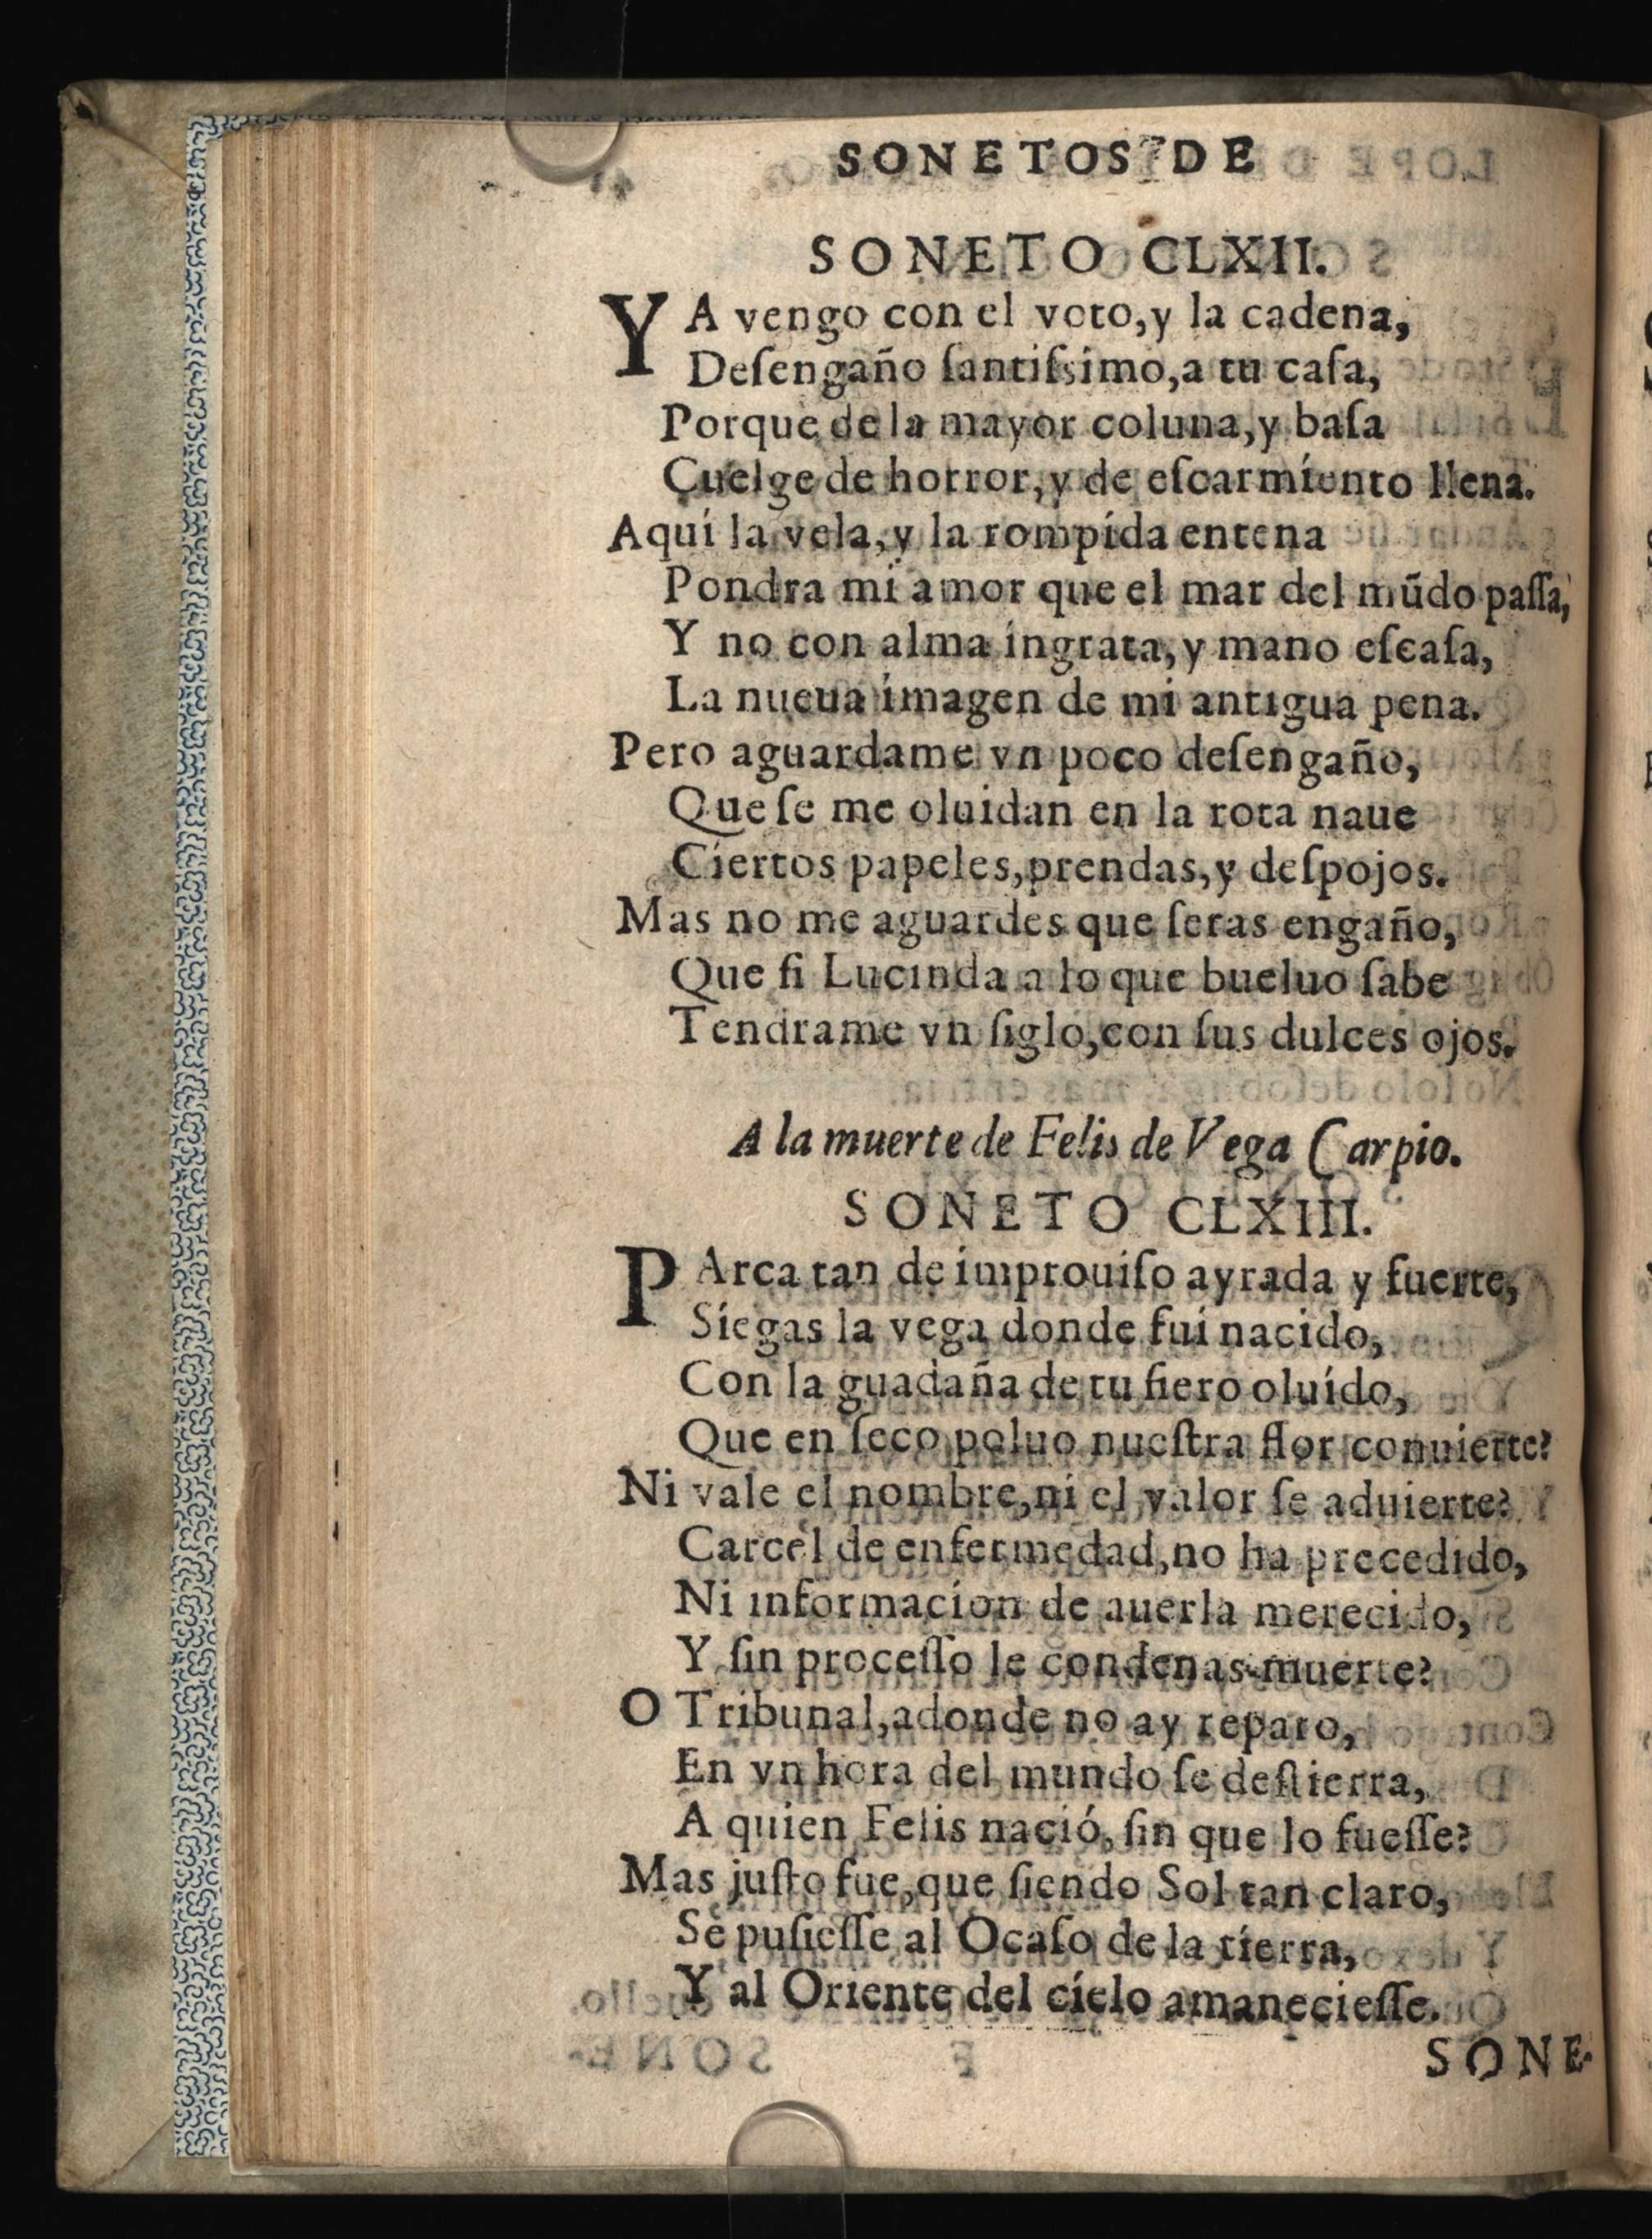 SONETOS DE
SONETO CLXII.
YA vengo con el voto,y la cadena,
Deſengaño ſantiſsimo,a tu caſa,
Porque de la mayor coluna,y baſa
Cuelge de horror,y de eſcarmiento llena.
Aqui la vela,y la rompida entena
Pondra mi amor que el mar del mũdo paſſa,
Y no con alma ingrata,y mano eſcaſa,
La nueua imagen de mi antigua pena.
Pero aguardame vn poco deſengaño,
Que ſe me oluidan en la rota naue
Ciertos papeles,prendas,y deſpojos.
Mas no me aguardes que ſeras engaño,
Que ſi Lucinda a lo que bueluo ſabe
Tendrame vn ſiglo,con ſus dulces ojos.
A la muerte de Felis de Vega Carpio.
SONETO CLXIII.
PArca tan de improuiſo ayrada y fuerte,
Siegas la vega donde fui nacido,
Con la guadaña de tu fiero oluido,
Que en ſeco poluo nueſtra flor conuierte?
Ni vale el nombre,ni el valor ſe aduierte?
Carcel de enfermedad,no ha precedido,
Ni informacion de auerla merecido,
Y ſin proceſſo le condenas muerte?
O Tribunal,adonde no ay reparo,
En vn hora del mundo ſe deſtierra,
A quien Felis nació, ſin que lo fueſſe?
Mas juſto fue,que ſiendo Sol tan claro,
Se puſieſſe al Ocaſo de la tierra,
Y al Oriente del cielo amanecieſſe.
SONE-